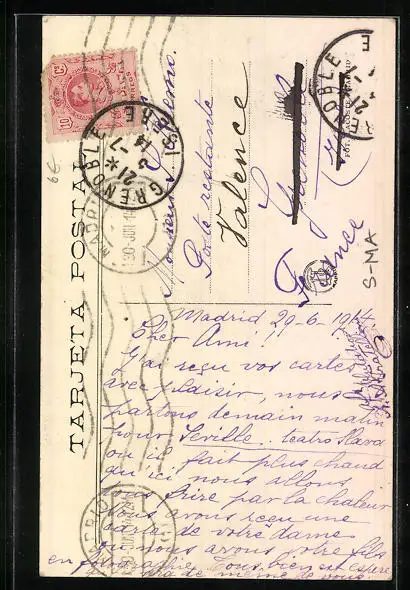 TARJETA POSTAL
10 Cs
CORREOS
GRENOBLE
21* 3-7 14
ISERE
30 JUN 14
6E
Monsieur
Poste restante
Valence
France
S-MA
Madrid 29-6-1914
Cher Ami!
J'ai reçu vos cartes
avec plaisir, nous
partons demain matin
pour Seville. teatro Slava
ou il fait plus chaud
qu'ici nous allons
tous frire par la chaleur
Nous avons reçu une
carte de votre dame
ou nous avons votre fils
en fotographie. Tous bien et espère
de même de vous